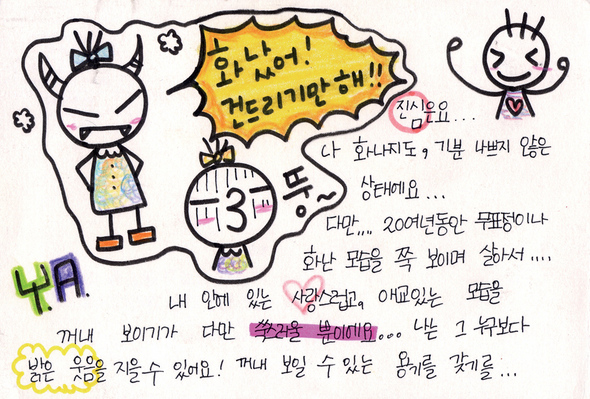 화 났어!
건드리기만 해!!
뚱~
진심은요...
나 화나지도, 기분 나쁘지 않은
상태에요...
다만,,,, 20여년동안 무표정이나
화난 모습을 쭉 보이며 살아서....
Y.A.
내 안에 있는 사랑스럽고, 애교있는 모습을
꺼내 보이기가 다만 쑥스러울 뿐이에요... 나는 그 누구보다
밝은 웃음을 지을 수 있어요! 꺼내 보일 수 있는 용기를 갖기를...